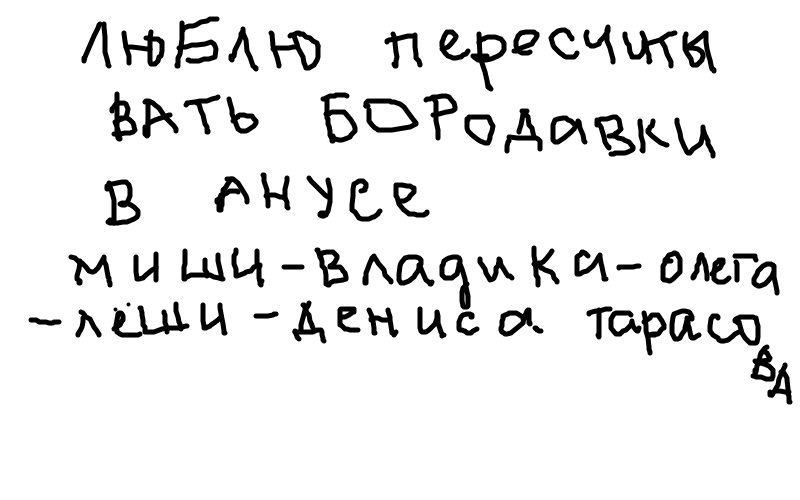 люблю пересчиты
вать бородавки
в анусе
миши-владика-олега
-лёши-дениса тарасо
ва